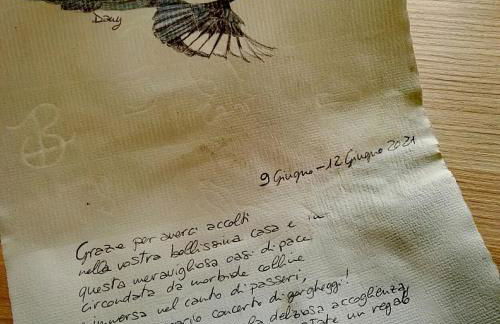 Dany
9 Giugno - 12 Giugno 2021
Grazie per averci accolti
nella vostra bellissima casa e in
questa meravigliosa oasi di pace
circondata da morbide colline
immersa nel canto di passeri,
concerto di gorgheggi!
la deliziosa accoglienza,
un regalo